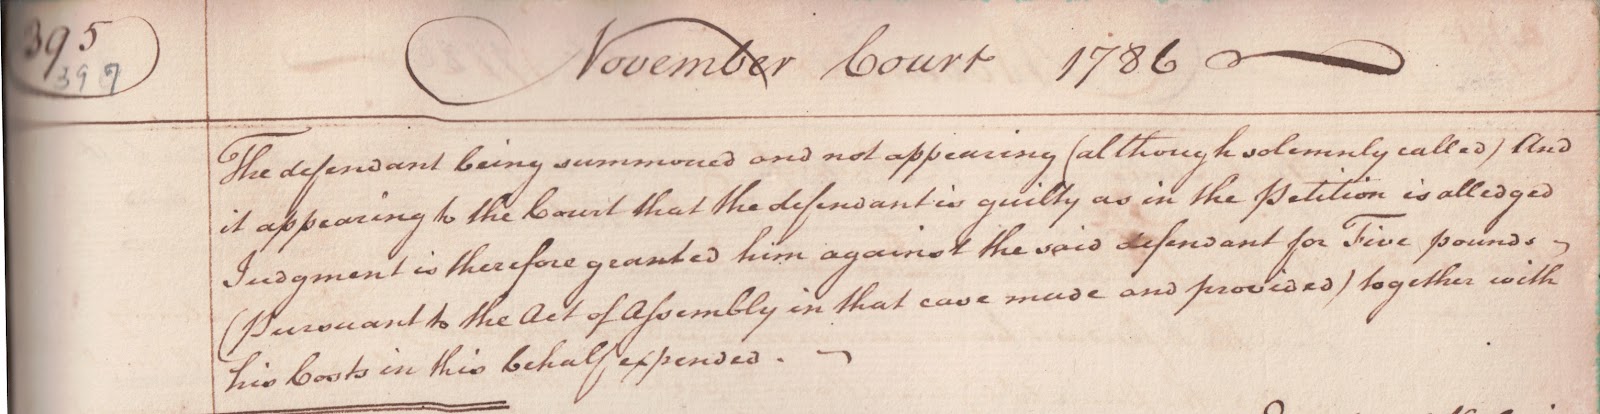 395
397
November Court 1786
The defendant being summoned and not appearing (although solemnly called) And
it appearing to the Court that the defendant is guilty as in the Petition is alledged
Judgment is therefore granted him against the said defendant for Five pounds
(Pursuant to the Act of Assembly in that case made and provided) together with
his Costs in this behalf expended.